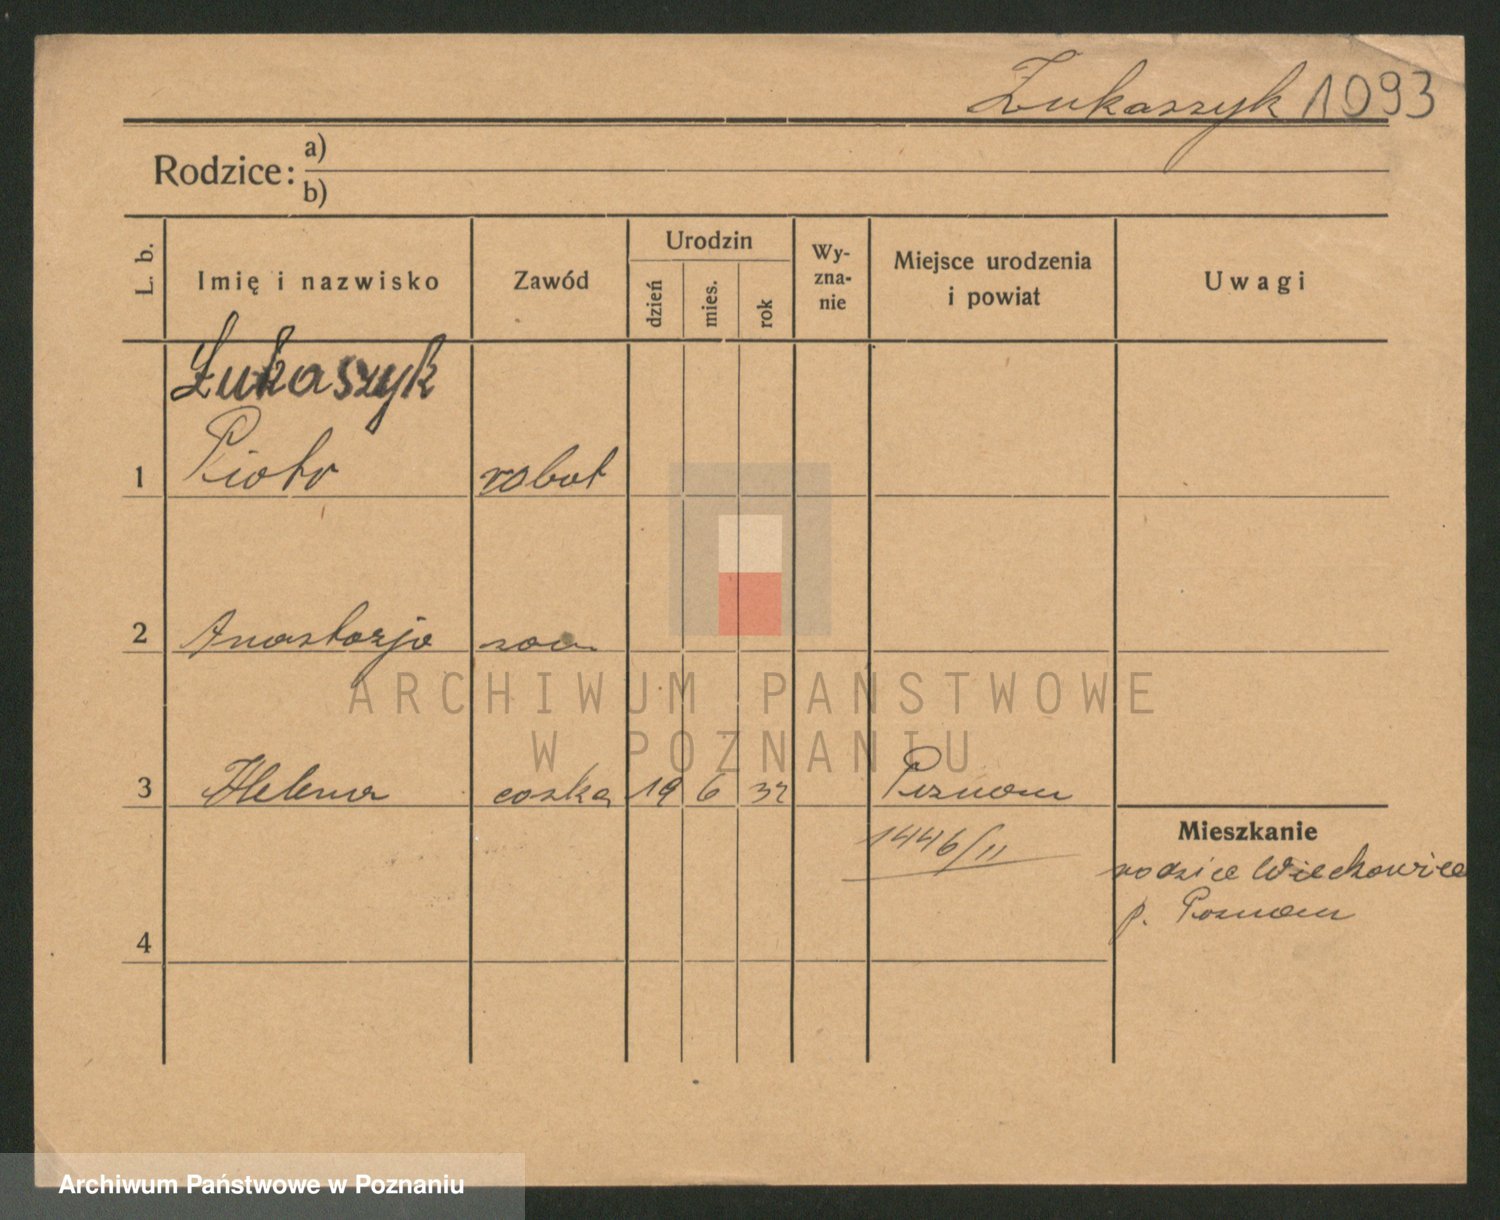 Łukaszyk 1093
Rodzice: a)
b)
L. b.
Imię i nazwisko
Zawód
Urodzin
dzień
mies.
rok
Wy-
zna-
nie
Miejsce urodzenia
i powiat
Uwagi
Łukaszyk
1 Piotr robot
2 Anastazja żona
ARCHIWUM PAŃSTWOWE
W POZNANIU
3 Helena 19 6 32 Poznań
1446/II
Mieszkanie
rodzice Więckowice
p. Poznań
4
Archiwum Państwowe w Poznaniu